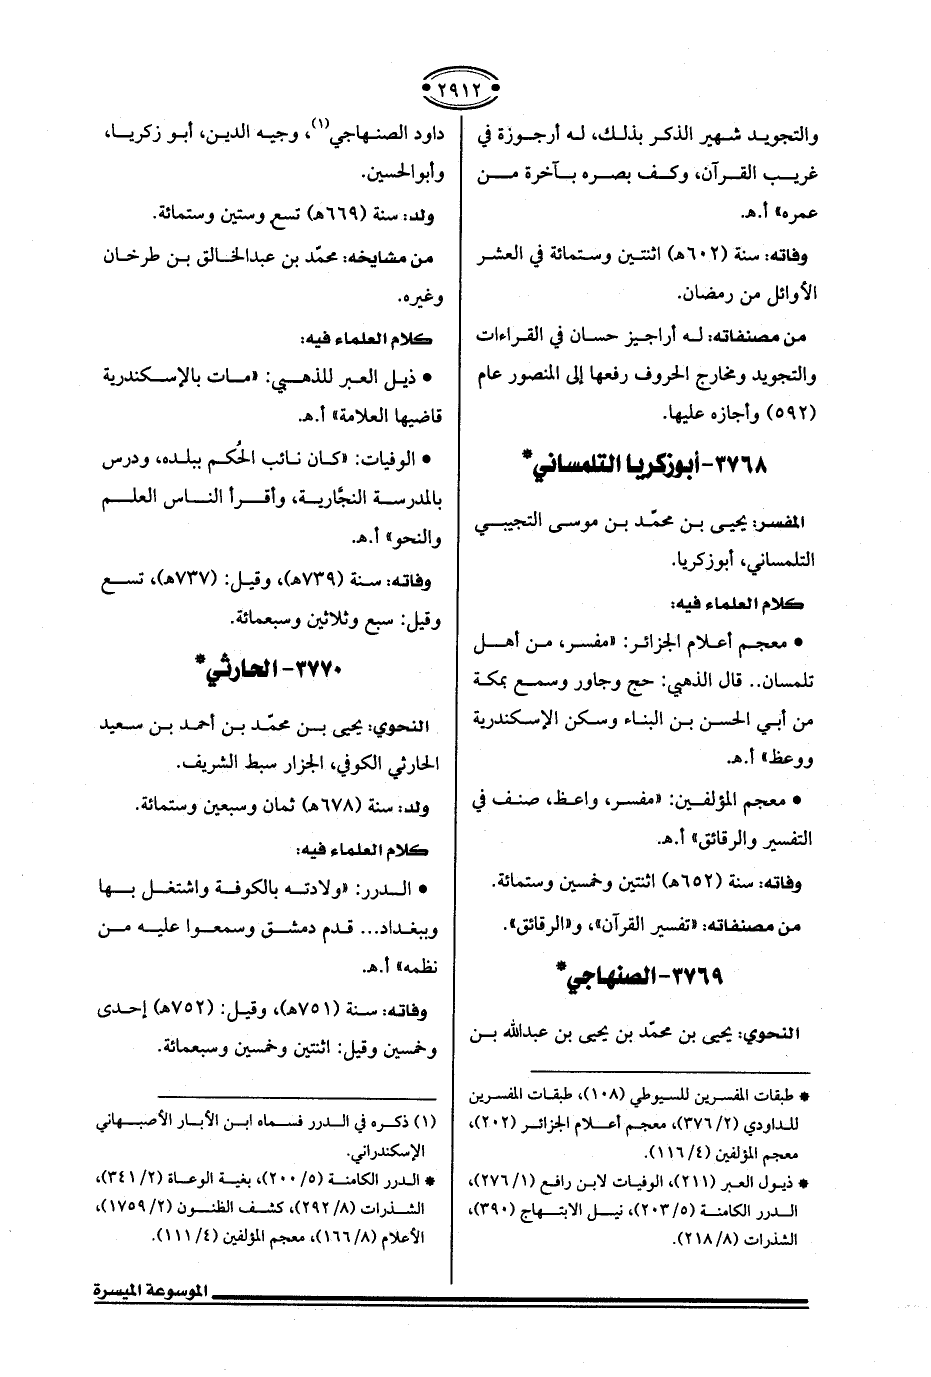 ٢٩١٢
والتجويد شهير الذكر بذلك، له أرجوزة في
غريب القرآن، وكف بصره بآخرة من
عمره» أ.هـ.
وفاته: سنة (٦٠٢هـ) اثنتين وستمائة في العشر
الأوائل من رمضان.
من مصنفاته: له أراجيز حسان في القراءات
والتجويد ومخارج الحروف رفعها إلى المنصور عام
(٥٩٢) وأجازه عليها.
٣٧٦٨- أبوزكريا التلمساني*
المفسر: يحيى بن محمّد بن موسى التجيبي
التلمساني، أبوزكريا.
كلام العلماء فيه:
• معجم أعلام الجزائر: «مفسر، من أهل
تلمسان.. قال الذهبي: حج وجاور وسمع بمكة
من أبي الحسن بن البناء وسكن الإسكندرية
ووعظ» أ.هـ.
• معجم المؤلفين: «مفسر، واعظ، صنف في
التفسير والرقائق» أ.هـ.
وفاته: سنة (٦٥٢هـ) اثنتين وخمسين وستمائة.
من مصنفاته: «تفسير القرآن»، و«الرقائق».
٣٧٦٩- الصنهاجي*
النحوي: يحيى بن محمّد بن يحيى بن عبدالله بن
* طبقات المفسرين للسيوطي (١٠٨)، طبقات المفسرين
للداودي (٣٧٦/٢)، معجم أعلام الجزائر (٢٠٢)،
معجم المؤلفين (١١٦/٤).
* ذيول العبر (٢١١)، الوفيات لابن رافع (٢٧٦/١)،
الدرر الكامنة (٢٠٣/٥)، نيل الابتهاج (٣٩٠)،
الشذرات (٢١٨/٨).
داود الصنهاجي(١)، وجيه الدين، أبو زكريا،
وأبوالحسين.
ولد: سنة (٦٦٩هـ) تسع وستين وستمائة.
من مشايخه: محمّد بن عبدالخالق بن طرخان
وغيره.
كلام العلماء فيه:
• ذيل العبر للذهبي: «مات بالإسكندرية
قاضيها العلامة» أ.هـ.
• الوفيات: «كان نائب الحُكم ببلده، ودرس
بالمدرسة النجَّارية، وأقرأ الناس العلم
والنحو» أ.هـ.
وفاته: سنة (٧٣٩هـ)، وقيل: (٧٣٧هـ)، تسع
وقيل: سبع وثلاثين وسبعمائة.
٣٧٧٠- الحارثي*
النحوي: يحيى بن محمّد بن أحمد بن سعيد
الحارثي الكوفي، الجزار سبط الشريف.
ولد: سنة (٦٧٨هـ) ثمان وسبعين وستمائة.
كلام العلماء فيه:
• الدرر: «ولادته بالكوفة واشتغل بها
وببغداد... قدم دمشق وسمعوا عليه من
نظمه» أ.هـ.
وفاته: سنة (٧٥١هـ)، وقيل: (٧٥٢هـ) إحدى
وخمسين وقيل: اثنتين وخمسين وسبعمائة.
(١) ذكره في الدرر فسماه ابن الأبار الأصبهاني
الإسكندراني.
* الدرر الكامنة (٢٠٠/٥)، بغية الوعاة (٣٤١/٢)،
الشذرات (٢٩٢/٨)، كشف الظنون (١٧٥٩/٢)،
الأعلام (١٦٦/٨)، معجم المؤلفين (١١١/٤).
الموسوعة الميسرة